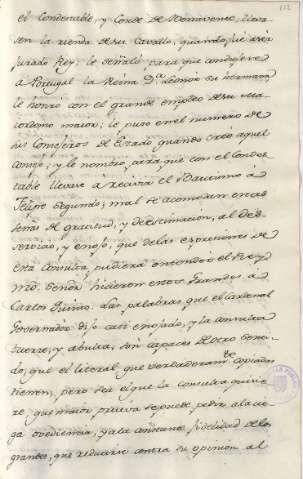 112
el Condestable, y Conde de Benavente, lleva
sen la rienda de su Cavallo, quando fue a ser
jurado Rey: le señaló para que condujere
a Portugal la Reina D.a Leonor su hermana
le honró con el grande empleo de su Ma
iordomo maior; le puso en el numero de
los Consejeros de Estado quando creó aquel
Consejo; y le nombró, para que con el Condes
table llevare a recivir el Bautismo a
Felipe Segundo; mal se acomodan estas
señas de gratitud, y de estimacion, al des
servicio, y enojo, que de las expresiones de
esta Consulta pudiera entenderse el Rey
hicieron estos Grandes a
Carlos Quinto. Las palabras que el Cardenal
Governador dijo casi enojado, y la consulta
fuerte, y abulta, son capaces de otro senti
do, que el literal que verdaderam.te copiadas
tienen, pero sea el que la Consulta quisie
re, que maior prueva se puede pedir a la cie
ga obediencia, y a la constante fidelidad de los
grandes, que reducirse contra su opinion al